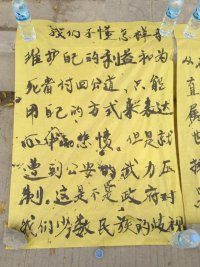 我们不懂怎样去
维护自己的利益和为
死者付回公道，只能
用自己的方式来表达
心中的悲愤。但是就
遭到公安的武力压
制。这是不是政府对
我们少数民族的歧视
从
直
展
世